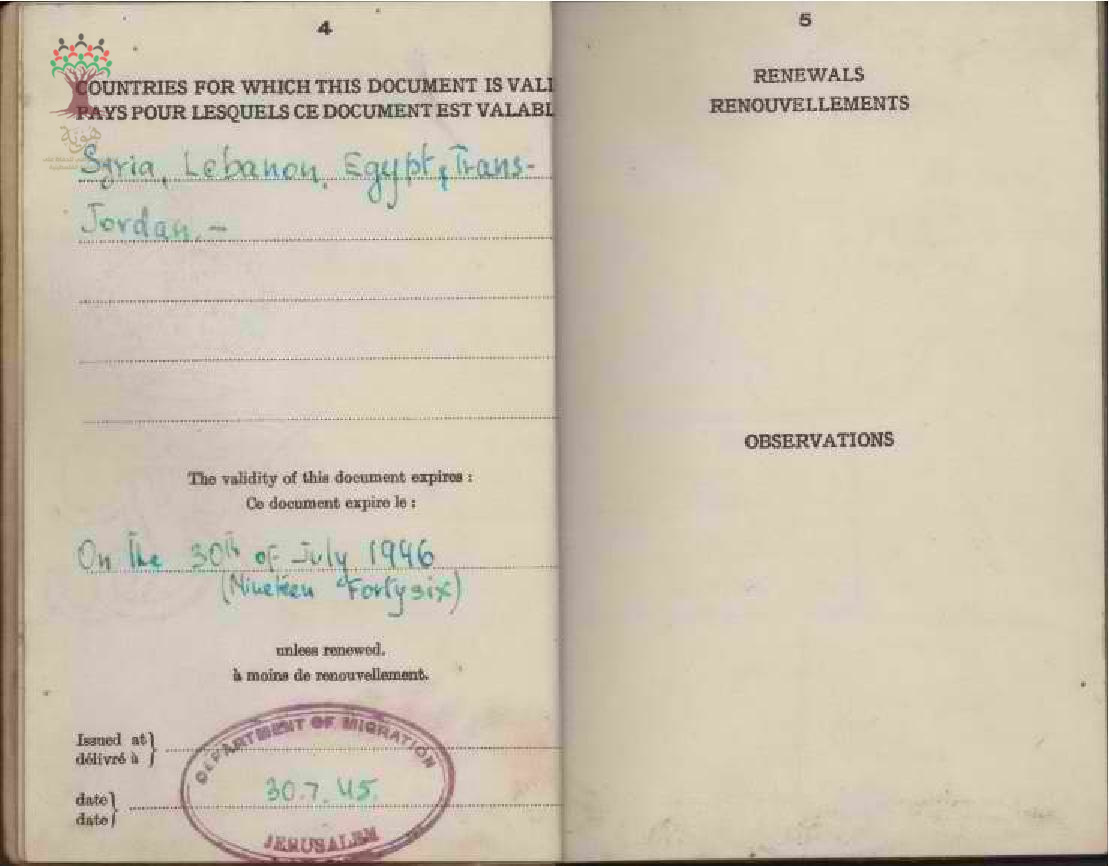 4
COUNTRIES FOR WHICH THIS DOCUMENT IS VALI
PAYS POUR LESQUELS CE DOCUMENT EST VALABL
هوية
Syria, Lebanon, Egypt, Trans-
Jordan.-
The validity of this document expires :
Ce document expire le :
On the 30th of July 1946
(Nineteen Fortysix)
unless renewed.
à moins de renouvellement.
Issued at
délivré à
date
date
DEPARTMENT OF MIGRATION
30.7.45.
JERUSALEM
5
RENEWALS
RENOUVELLEMENTS
OBSERVATIONS